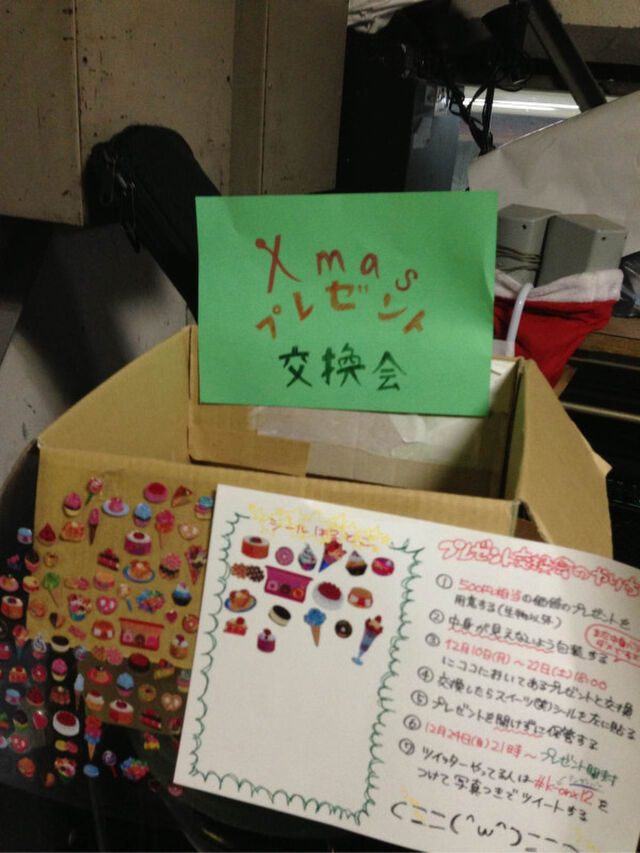 Xmas
プレゼント
交換会
シールはここに
プレゼント交換会のやり方
① 500円相当の価値のプレゼントを
用意する(生物以外)
② 中身が見えないよう包装する
③ 12月10日(月)～22日(土)18:00
にココにおいてあるプレゼントと交換
④ 交換したらスイーツ(笑)シールを左に貼る
⑤ プレゼントを開けずに保管する
⑥ 12月24日(月)21時～プレゼント開封
⑦ ツイッターやってる人は#k-onx12を
つけて写真つきでツイートする
⊂ニニ(^ω^)ニニ⊃